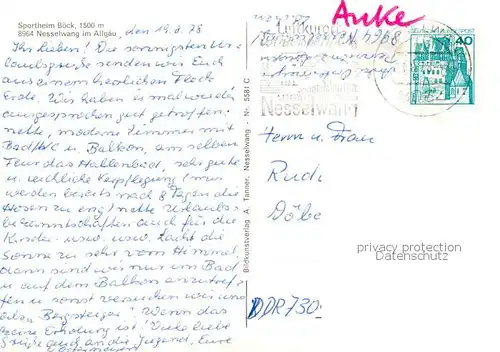 Sportheim Böck, 1500 m
8964 Nesselwang im Allgäu, den 19.8.78
Ihr Lieben! Die sonnigsten Ur-
laubsgrüße senden wir Euch
aus einem herrlichen Fleck
Erde. Wir haben es mal wieder
ausgesprochen gut getroffen:
nette, moderne Zimmer mit
Bad/WC u. Balkon, am selben
Flur das Hallenbad, sehr gute
u. reichliche Verpflegung (nur
werden bereits nach 8 Tagen die
Hosen zu eng) nette Urlaubs-
bekanntschaften auch für die
Kinder usw. usw. Lacht die
Sonne zu sehr vom Himmel,
dann sind wir nur im Bad
u. auf dem Balkon anzutref-
fen u. sonst versuchen wir uns
als "Bergsteiger". Wenn das
keine Erholung ist! Viele liebe
Grüße auch an die Jugend. Eure
Bildkunstverlag A. Tanner, Nesselwang - Nr. 5581 C
Anke
Luftkurort
Nesselwang
8964
DEUTSCHE BUNDESPOST
40
Herrn u. Frau
Rudi
Döbe
privacy protection
Datenschutz
DDR 730